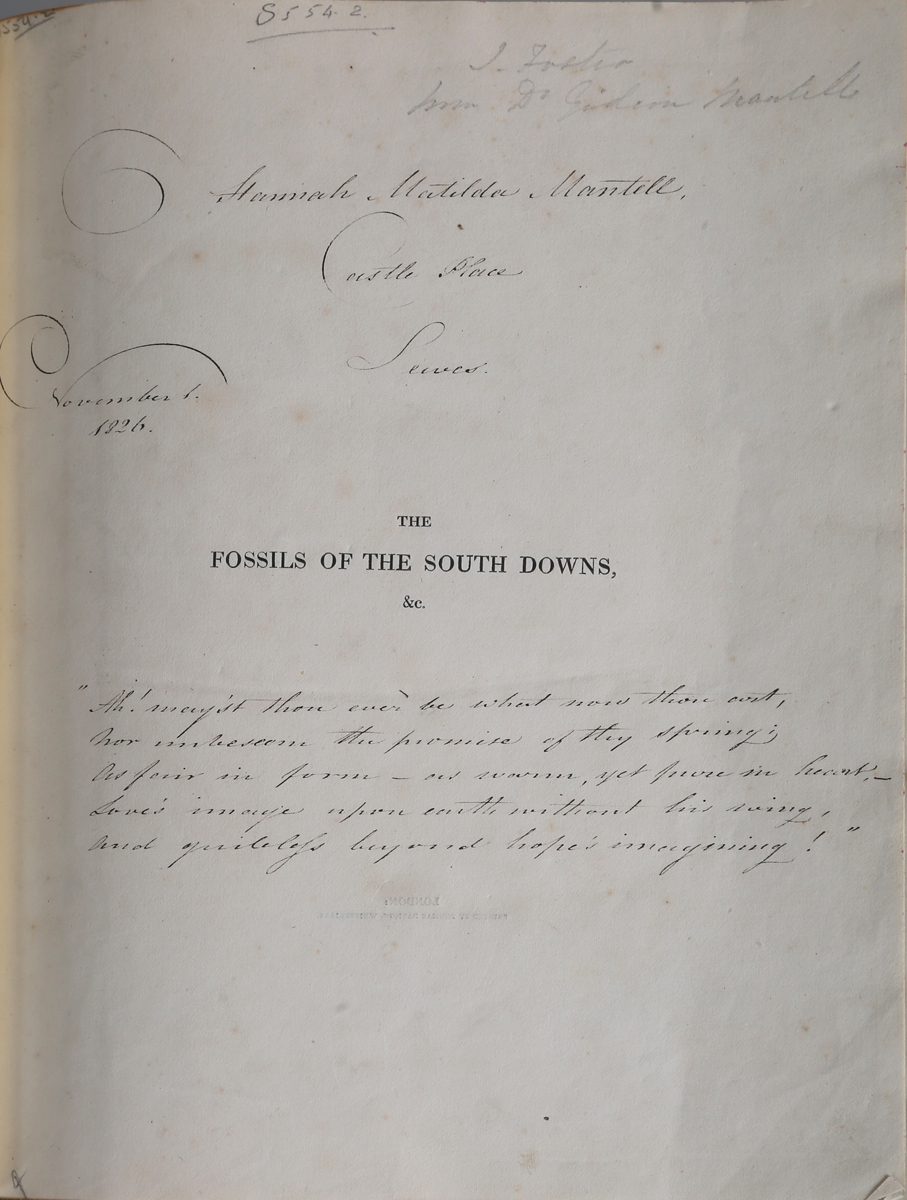 8554.2
8554.2.
J. Foster
from Dr Gideon Mantell
Hannah Matilda Mantell,
Castle Place
Lewes.
November 1.
1826.
THE
FOSSILS OF THE SOUTH DOWNS,
&c.
"Ah! may'st thou ever be what now thou art,
Nor unbeseem the promise of thy spring;
As fair in form – as warm, yet pure in heart, –
Love's image upon earth without his wing,
And guileless beyond hope's imagining!"
LONDON: